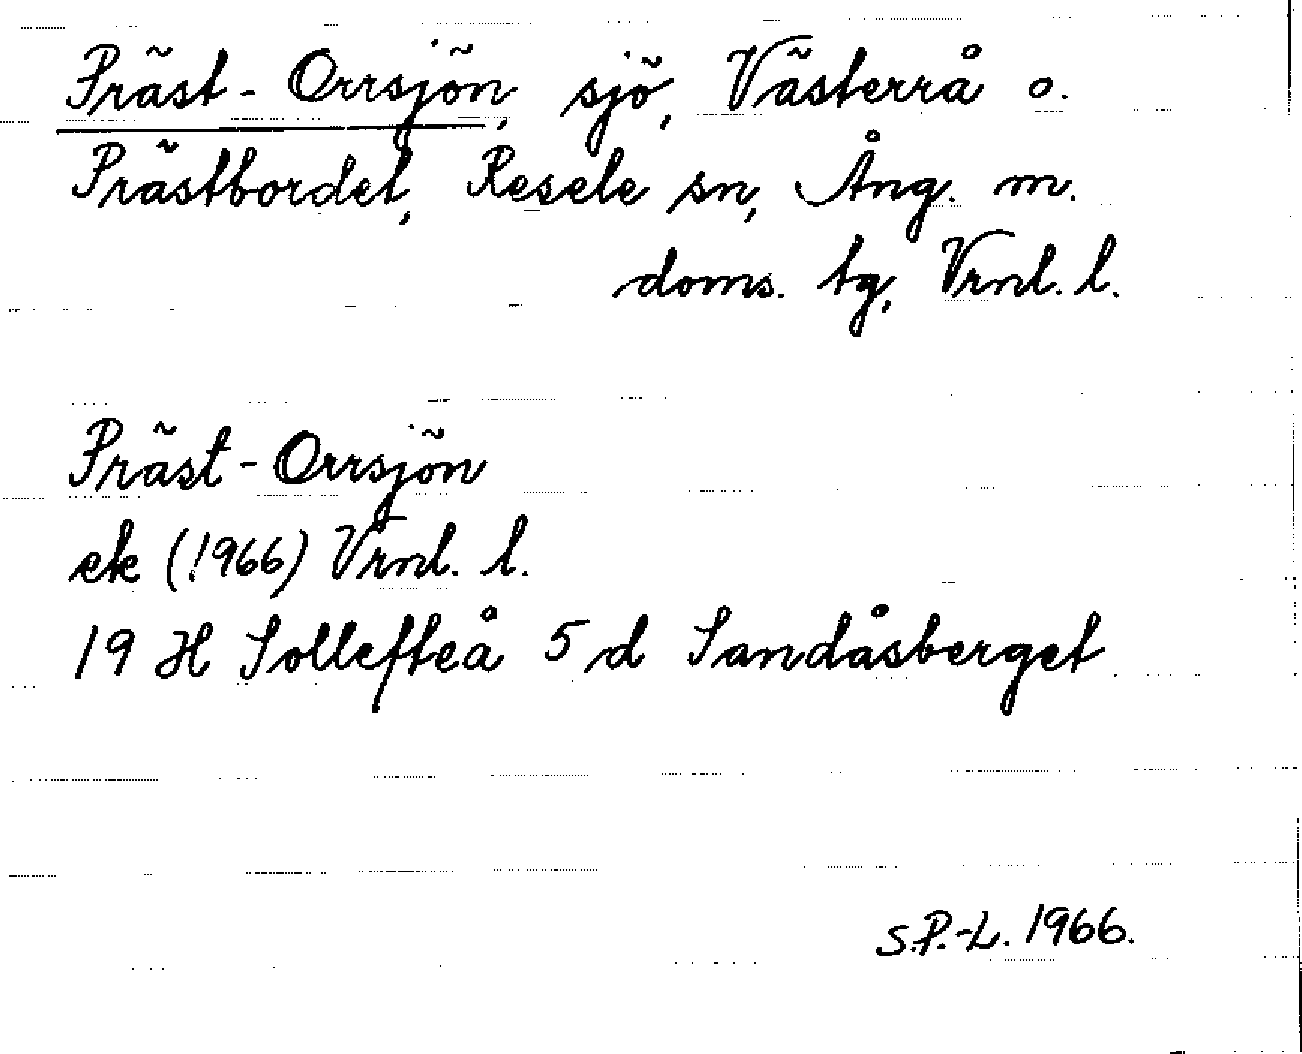 Präst-Orrsjön, sjö, Västerrå o.
Prästbordet, Resele sn, Ång. m.
doms. tg, Vrnl. l.
Präst-Orrsjön
ek (!966) Vrnl. l.
19 H Sollefteå 5 d Sandåsberget
S.P.-L. 1966.